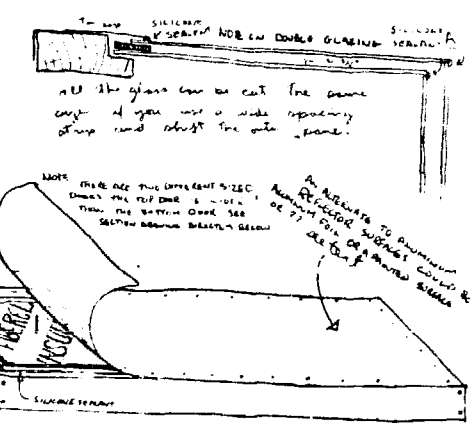 SILICONE
SEALENT
NOTE ON DOUBLE GLAZING
SEALANT
all the glass can be cut the same
if you use a wide spacing
strip and shift the outer pane.
NOTE
THERE ARE TWO DIFFERENT SIZED
DOORS THE TOP DOOR IS WIDER
THEN THE BOTTOM DOOR SEE
SECTION DRAWING DIRECTLY BELOW
AN ALTERNATE TO ALUMINUM
REFLECTOR SURFACES COULD BE
ALUMINUM FOIL OR A PAINTED SURFACE
OR ??
FIBERGL
INSUL
SILICONE SEALANT